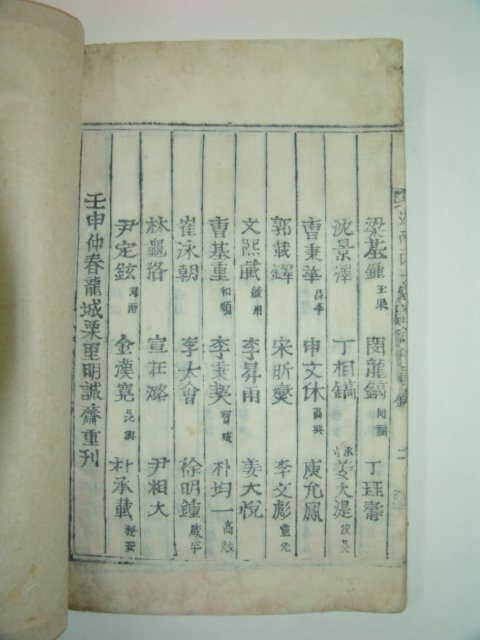 梁基鍾 玉果 閔龍鎬 同福 丁珏壽
沈景澤 丁相鎬 姜大湜 長
曺秉華 昌平 申文休 高興 庾允鳳
郭載鐸 宋昕燮 李文彪 靈光
文熙 李昇雨 姜大悅
曺基重 和順 李秉契 寶城 朴均一 高敞
崔泳朝 李大會 徐明鍾 咸平
林龜洛 宣在潞 尹相大
尹定鉉 海南 金漢堯 長興 朴承載 務安
壬申仲春龍城栗里明誠齋重刊